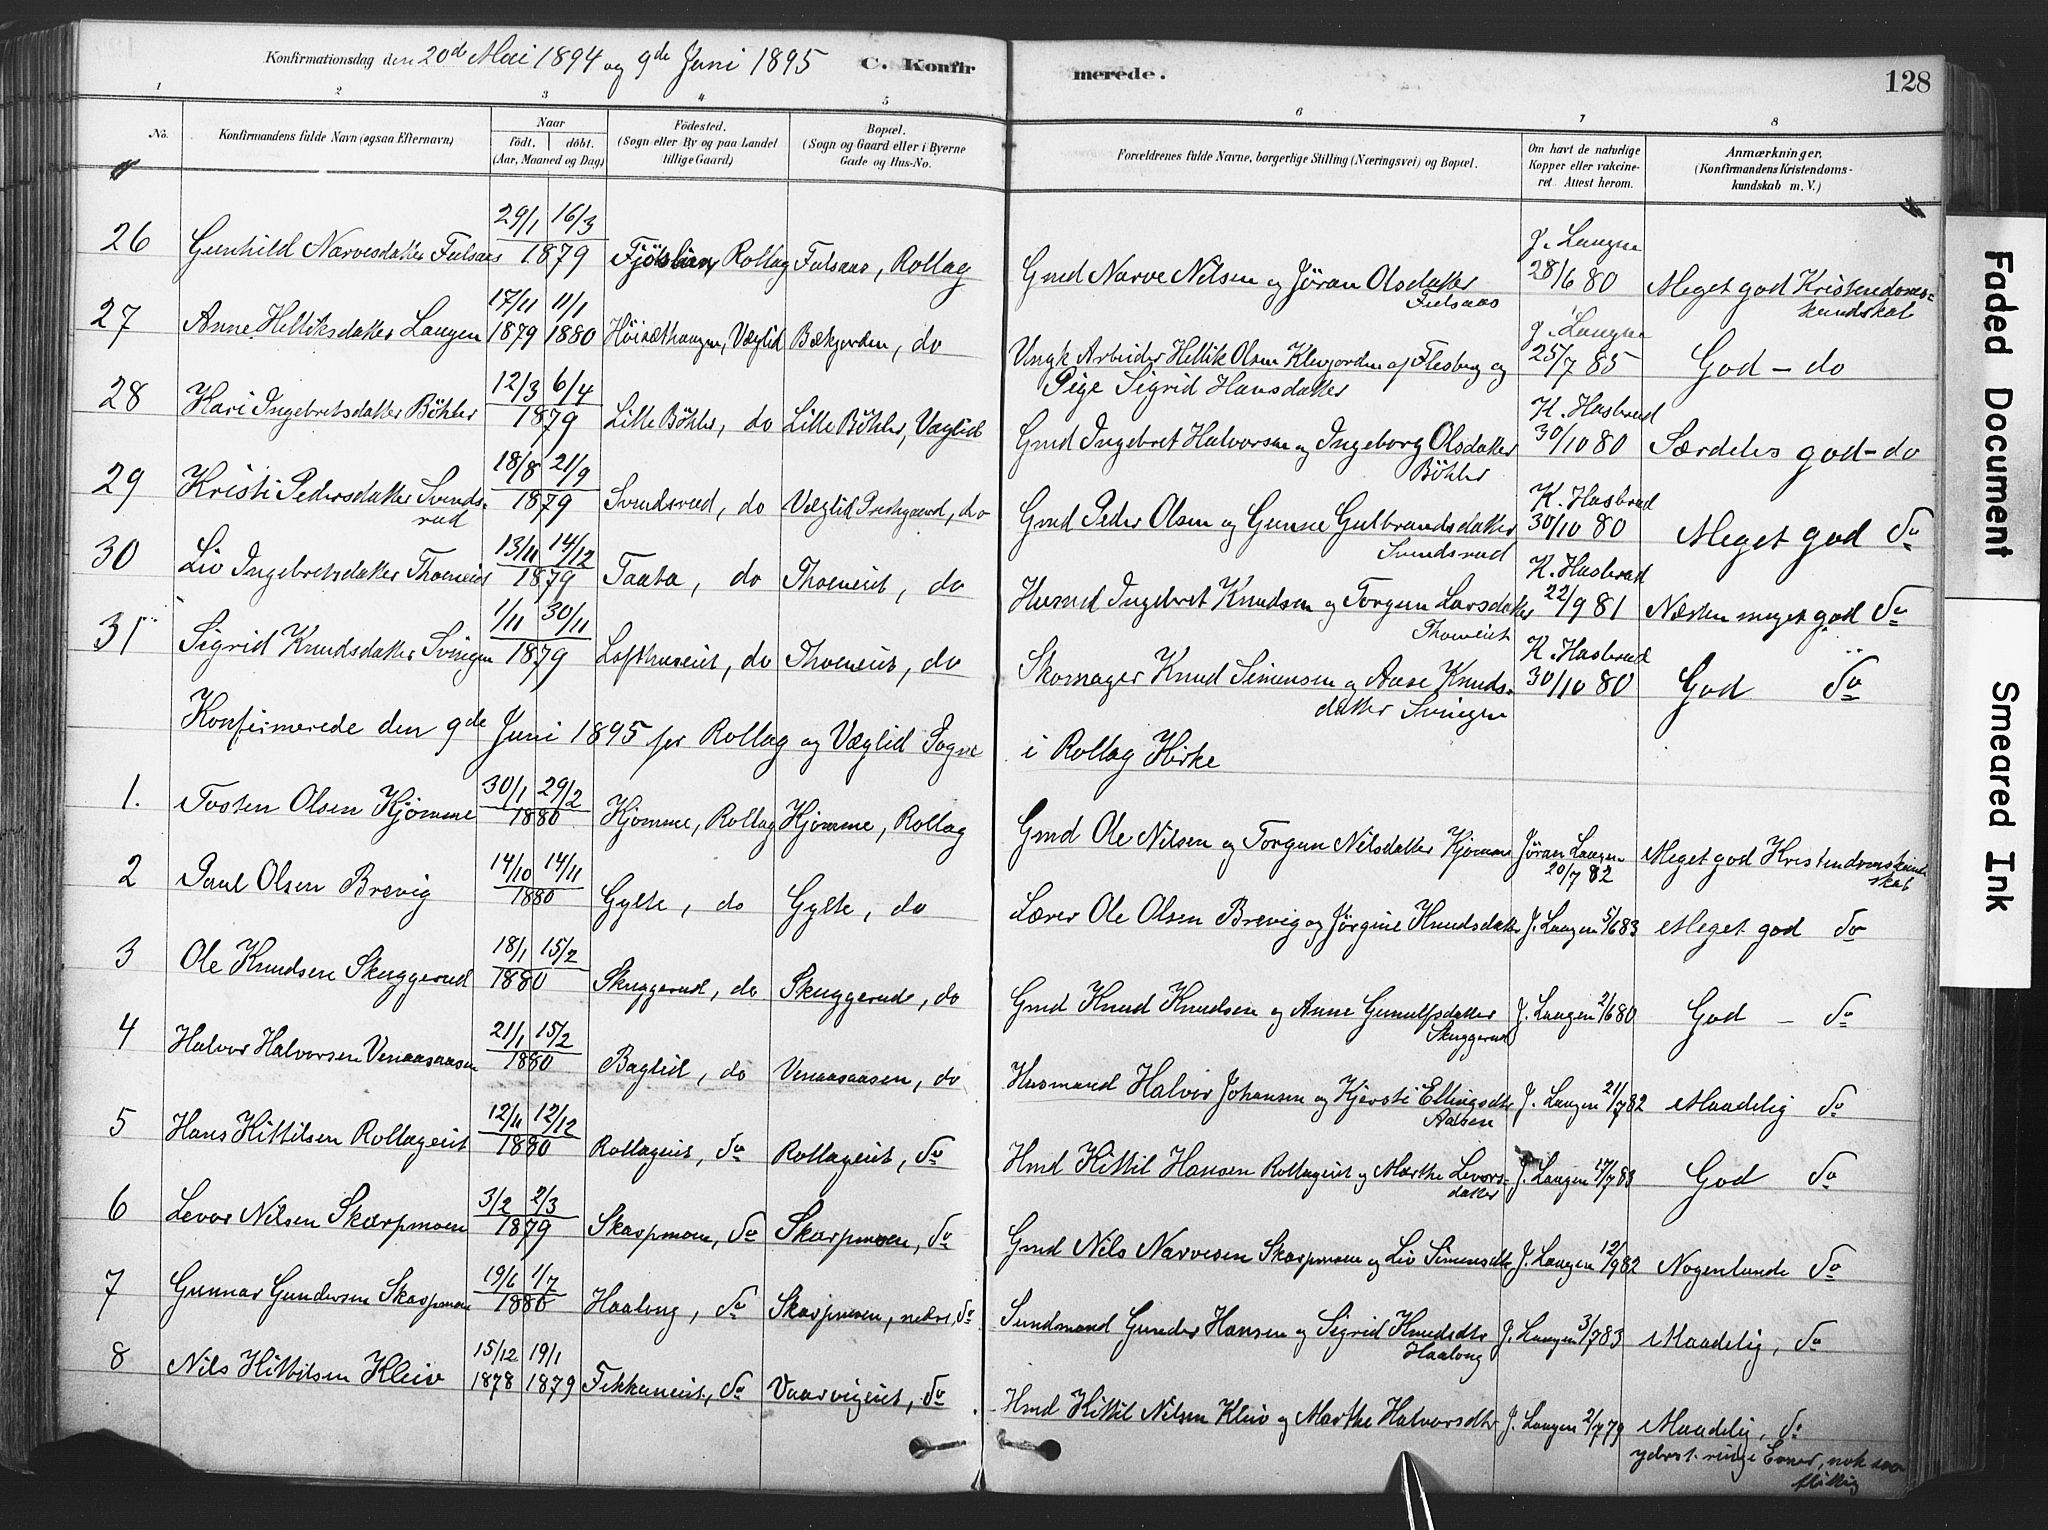 Konfirmationsdag den 20de Mai 1894 og 9de Juni 1895 C. Konfirmerede. 128
1 2 3 4 5 6 7 8
No. Konfirmandens fulde Navn (ogsaa Efternavn) Naar födt. döbt. (Aar, Maaned og Dag) Födested. (Sogn eller By og paa Landet tillige Gaard) Bopæl. (Sogn og Gaard eller i Byerne Gade og Hus-No. Forældrenes fulde Navne, borgerlige Stilling (Næringsvei) og Bopæl. Om havt de naturlige Kopper eller vakcineret. Attest herom. Anmærkninger. (Konfirmandens Kristendomskundskab m. V.)
26 Gunhild Narvesdatter Fulsaas 29/1 16/3 1879 Fjöslien, Rollag Fulsaas, Rollag Gmd Narve Nilsen og Jöran Olsdatter Fulsaas J. Laugen 28/6 80 Meget god Kristendomskundskab
27 Anne Helliksdatter Laugen 17/11 1879 11/1 1880 Höisæthaugen, Væglid Bækjorden, do Ungk Arbeider Hellik Olsen Klevjorden af Flesberg og Pige Sigrid Hansdatter J. Laugen 25/7 85 God - do
28 Kari Ingebretsdatter Böhler 12/3 6/4 1879 Lille Böhler, do Lille Böhler, Væglid Gmd Ingebret Halvorsen og Ingeborg Olsdatter Böhler K. Hasbrud 30/10 80 Særdeles god - do
29 Kristi Pedersdatter Svendsrud 18/8 21/9 1879 Svendsrud, do Væglid Prestgaard, do Gmd Peder Olsen og Gunne Gulbrandsdatter Svendsrud K. Hasbrud 30/10 80 Meget god do
30 Liv Ingebretsdatter Thoeneiet 13/11 14/12 1879 Taata, do Thoeneiet, do Husmd Ingebret Knudsen og Torgun Larsdatter Thoeneiet K. Hasbrud 22/9 81 Næsten meget god do
31 Sigrid Knudsdatter Svingen 1/11 30/11 1879 Lofthuseiet, do Thoeneiet, do Skomager Knud Simensen og Anne Knudsdatter Svingen K. Hasbrud 30/10 80 God do
Konfirmerede den 9de Juni 1895 for Rollag og Væglid Sogne i Rollag Kirke
1. Tosten Olsen Kjömme 30/1 29/2 1880 Kjömme, Rollag Kjömme, Rollag Gmd Ole Nilsen og Torgun Nilsdatter Kjömme Jöran Laugen 20/7 82 Meget god Kristendomskundskab
2 Paul Olsen Brevig 14/10 14/11 1880 Gylte, do Gylte, do Lærer Ole Olsen Brevig og Jörgine Knudsdatter J. Laugen 5/6 83 Meget god do
3 Ole Knudsen Skuggerud 18/1 15/2 1880 Skuggerud, do Skuggerud, do Gmd Knud Knudsen og Anne Gunulfsdatter Skuggerud J. Laugen 2/6 80 God - do
4 Halvor Halvorsen Venaasaasen 21/1 15/2 1880 Baglid, do Venaasaasen, do Husmand Halvor Johansen og Kjersti Ellingsdtr Aasen J. Laugen 21/7 82 Maadelig do
5 Hans Kittilsen Rollageiet 12/11 12/12 1880 Rollageiet, do Rollageiet, do Hmd Kittil Hansen Rollageiet og Marthe Levorsdatter J. Laugen 17/7 83 God do
6 Levor Nilsen Skarpmoen 3/2 2/3 1879 Skarpmoen, do Skarpmoen, do Gmd Nils Narvesen Skarpmoen og Liv Simensdtr J. Laugen 12/9 82 Nogenlunde do
7 Gunnar Gundersen Skarpmoen 19/6 1/7 1880 Haalong, do Skarpmoen, nedre, do Sundmand Gunder Hansen og Sigrid Knudsdtr Haalong J. Laugen 3/7 83 Maadelig, do
8 Nils Kittilsen Kleiv 15/12 1878 19/1 1879 Fekkaneiet, do Vaarvigeiet, do Hmd Kittil Nilsen Kleiv og Marthe Halvorsdtr J. Laugen 2/7 79 Maadelig, do yderst ringe Evner, nok saa flittig
Faded Document
Smeared Ink